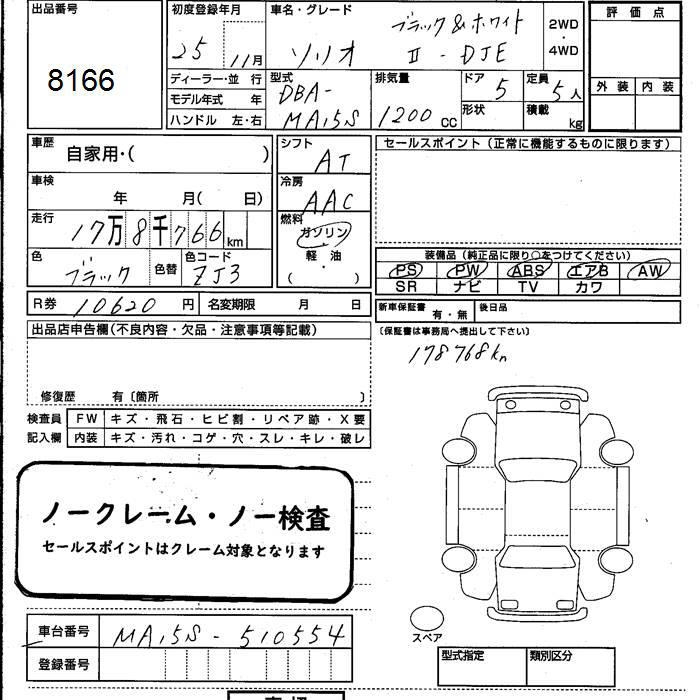 出品番号
8166
初度登録年月
25 11月
車名・グレード
ソリオ
ブラック&ホワイト
II - DJE
2WD
・
4WD
評価点
外装 内装
ディーラー・並 行
モデル年式 年
ハンドル 左・右
型式
DBA-
MA15S
排気量
1200 cc
ドア
5
形状
定員
5人
積載
kg
車歴
自家用・( )
車検
年 月( 日)
走行
17万8千766 km
色
ブラック
色替
色コード
ZJ3
シフト
AT
冷房
AAC
燃料
ガソリン
・
軽油
( )
セールスポイント(正常に機能するものに限ります)
装備品(純正品に限り○をつけてください)
PS PW ABS エアB AW
SR ナビ TV カワ
R券 10620 円
名変期限 月 日
新車保証書
有・無
後日品
(保証書は事務局へ提出して下さい)
178768km
出品店申告欄(不良内容・欠品・注意事項等記載)
修復歴 有〔箇所 〕
検査員
記入欄
FW キズ・飛石・ヒビ割・リペア跡・X要
内装 キズ・汚れ・コゲ・穴・スレ・キレ・破レ
ノークレーム・ノー検査
セールスポイントはクレーム対象となります
車台番号 MA15S-510554
登録番号
スペア
型式指定 類別区分